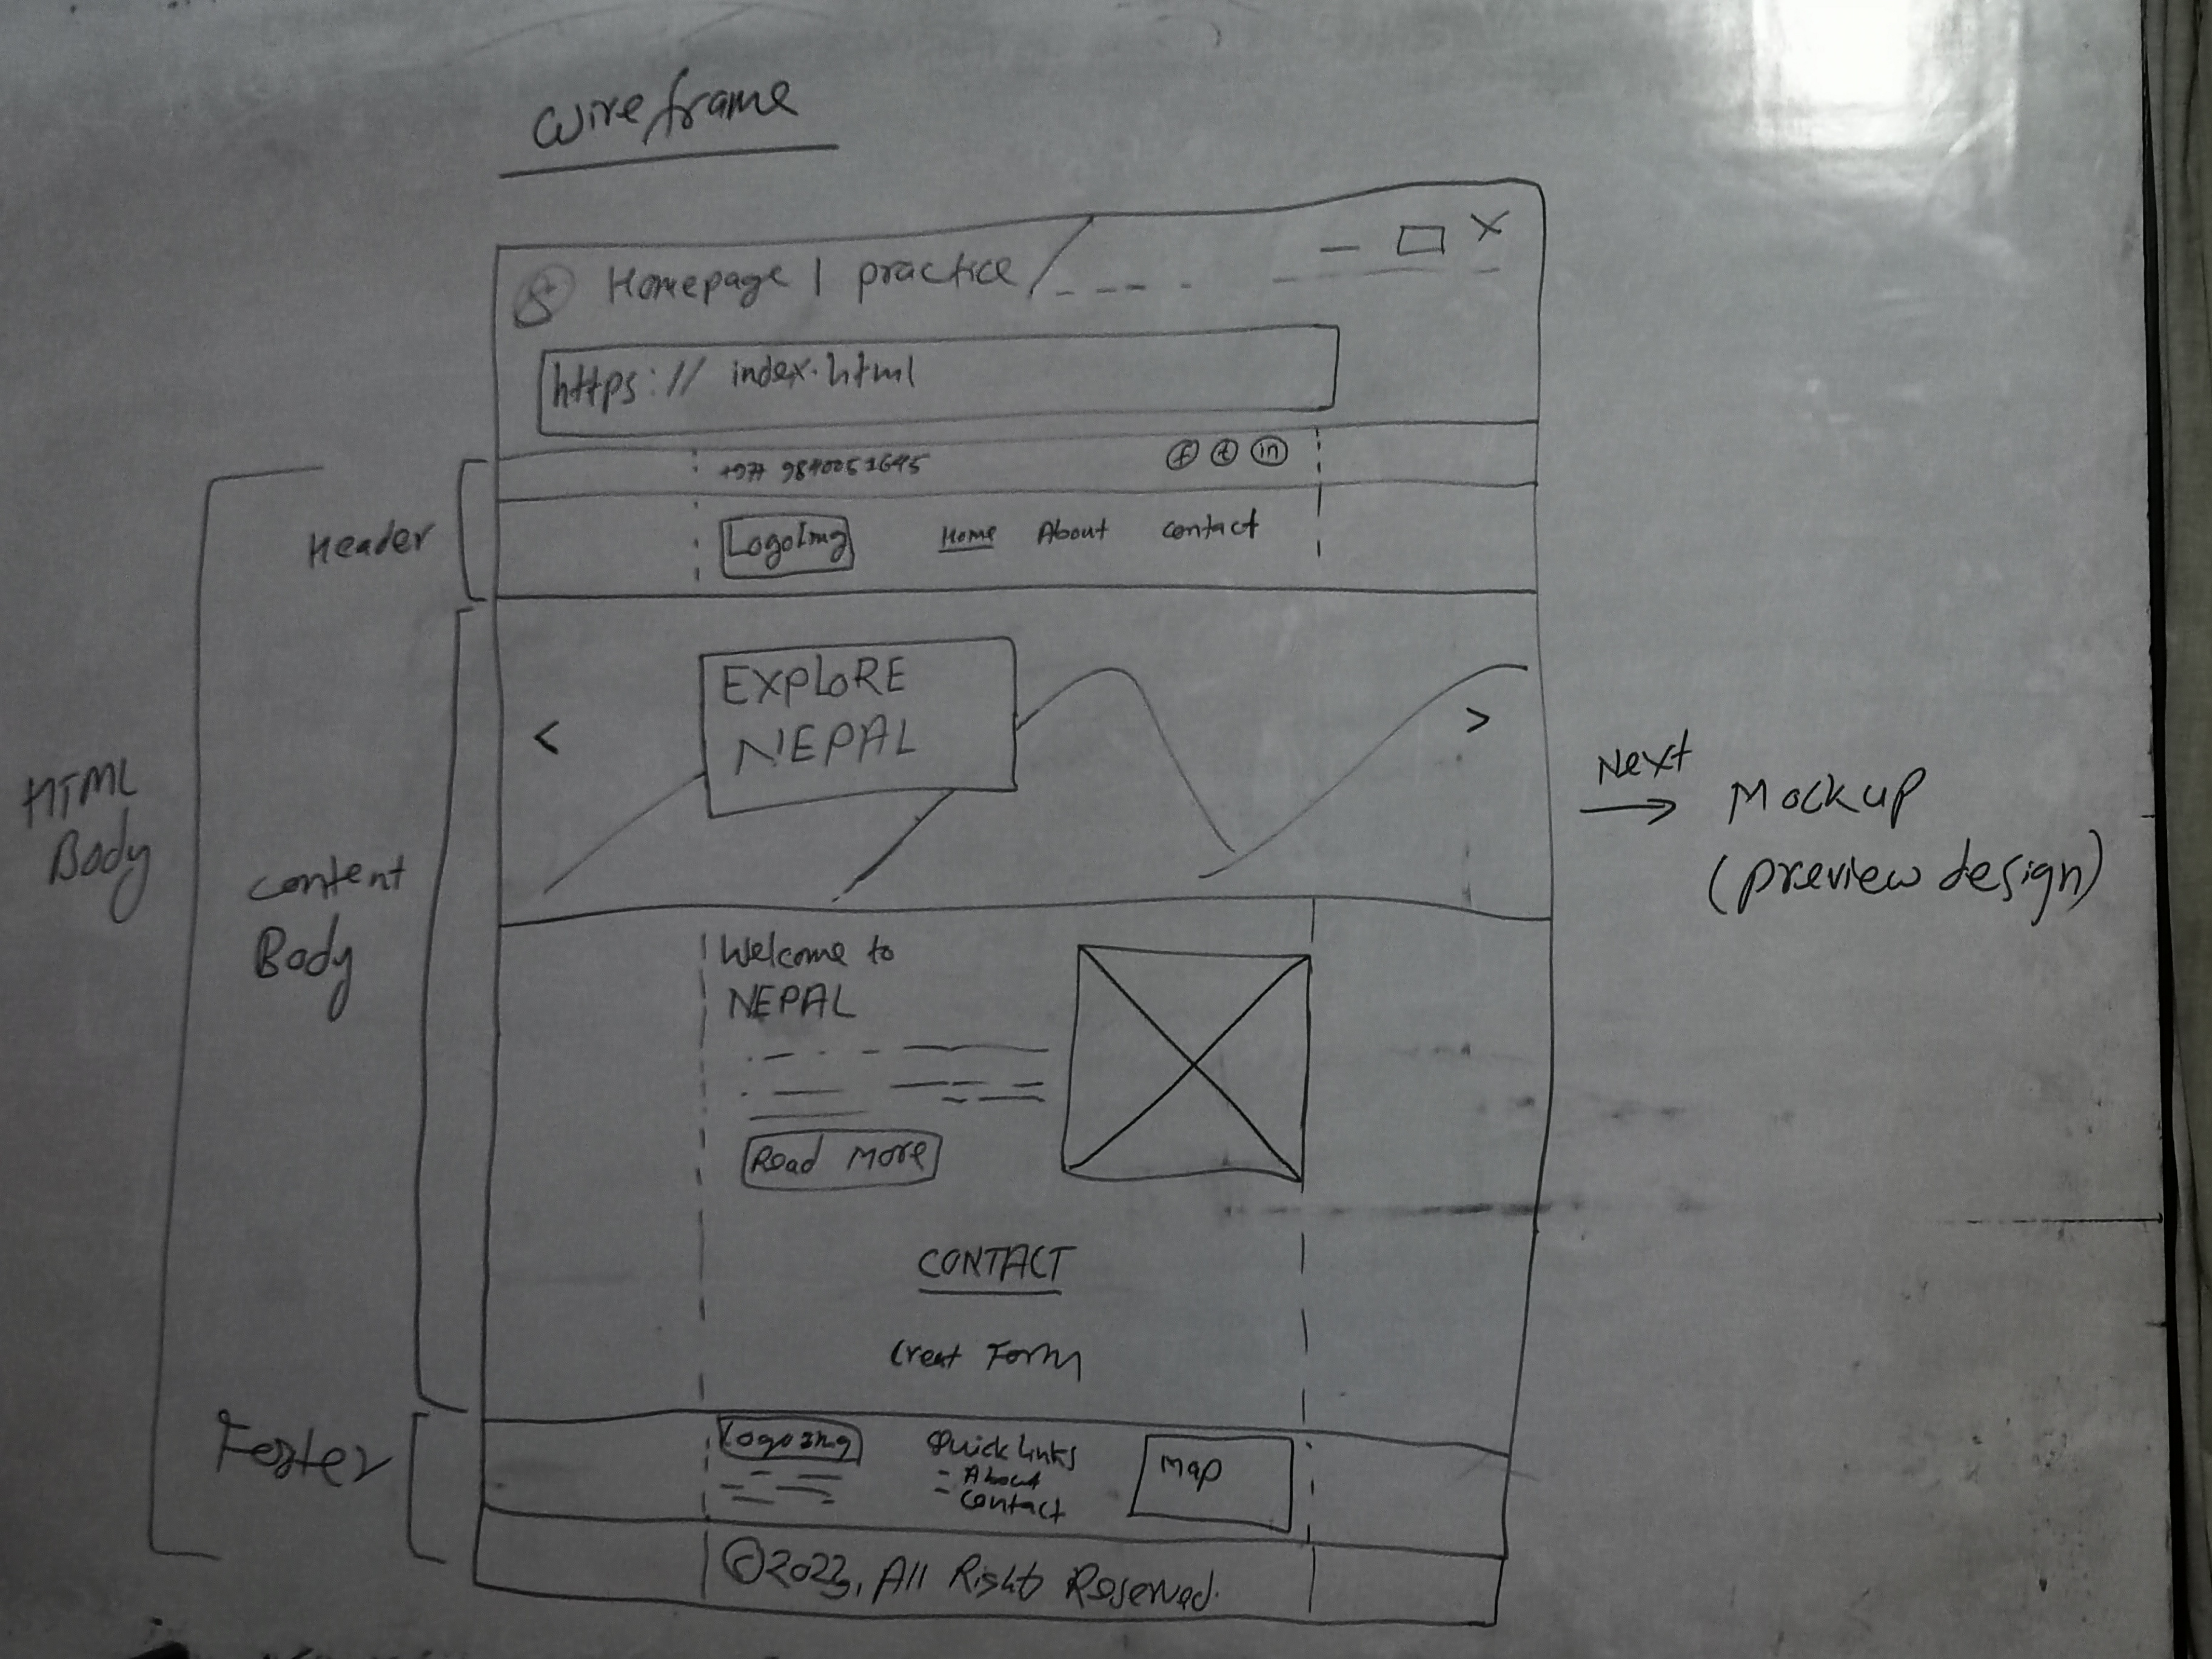 wireframe
Homepage | practice
https:// index.html
+977 9840051645
f t in
Header
LogoImg
Home About Contact
EXPLORE
NEPAL
<
>
Next
Mockup
(preview design)
HTML
Body
Content
Body
Welcome to
NEPAL
Read More
CONTACT
Creat Form
Footer
Logoimg
Quick links
- About
- Contact
Map
©2023, All Rights Reserved.